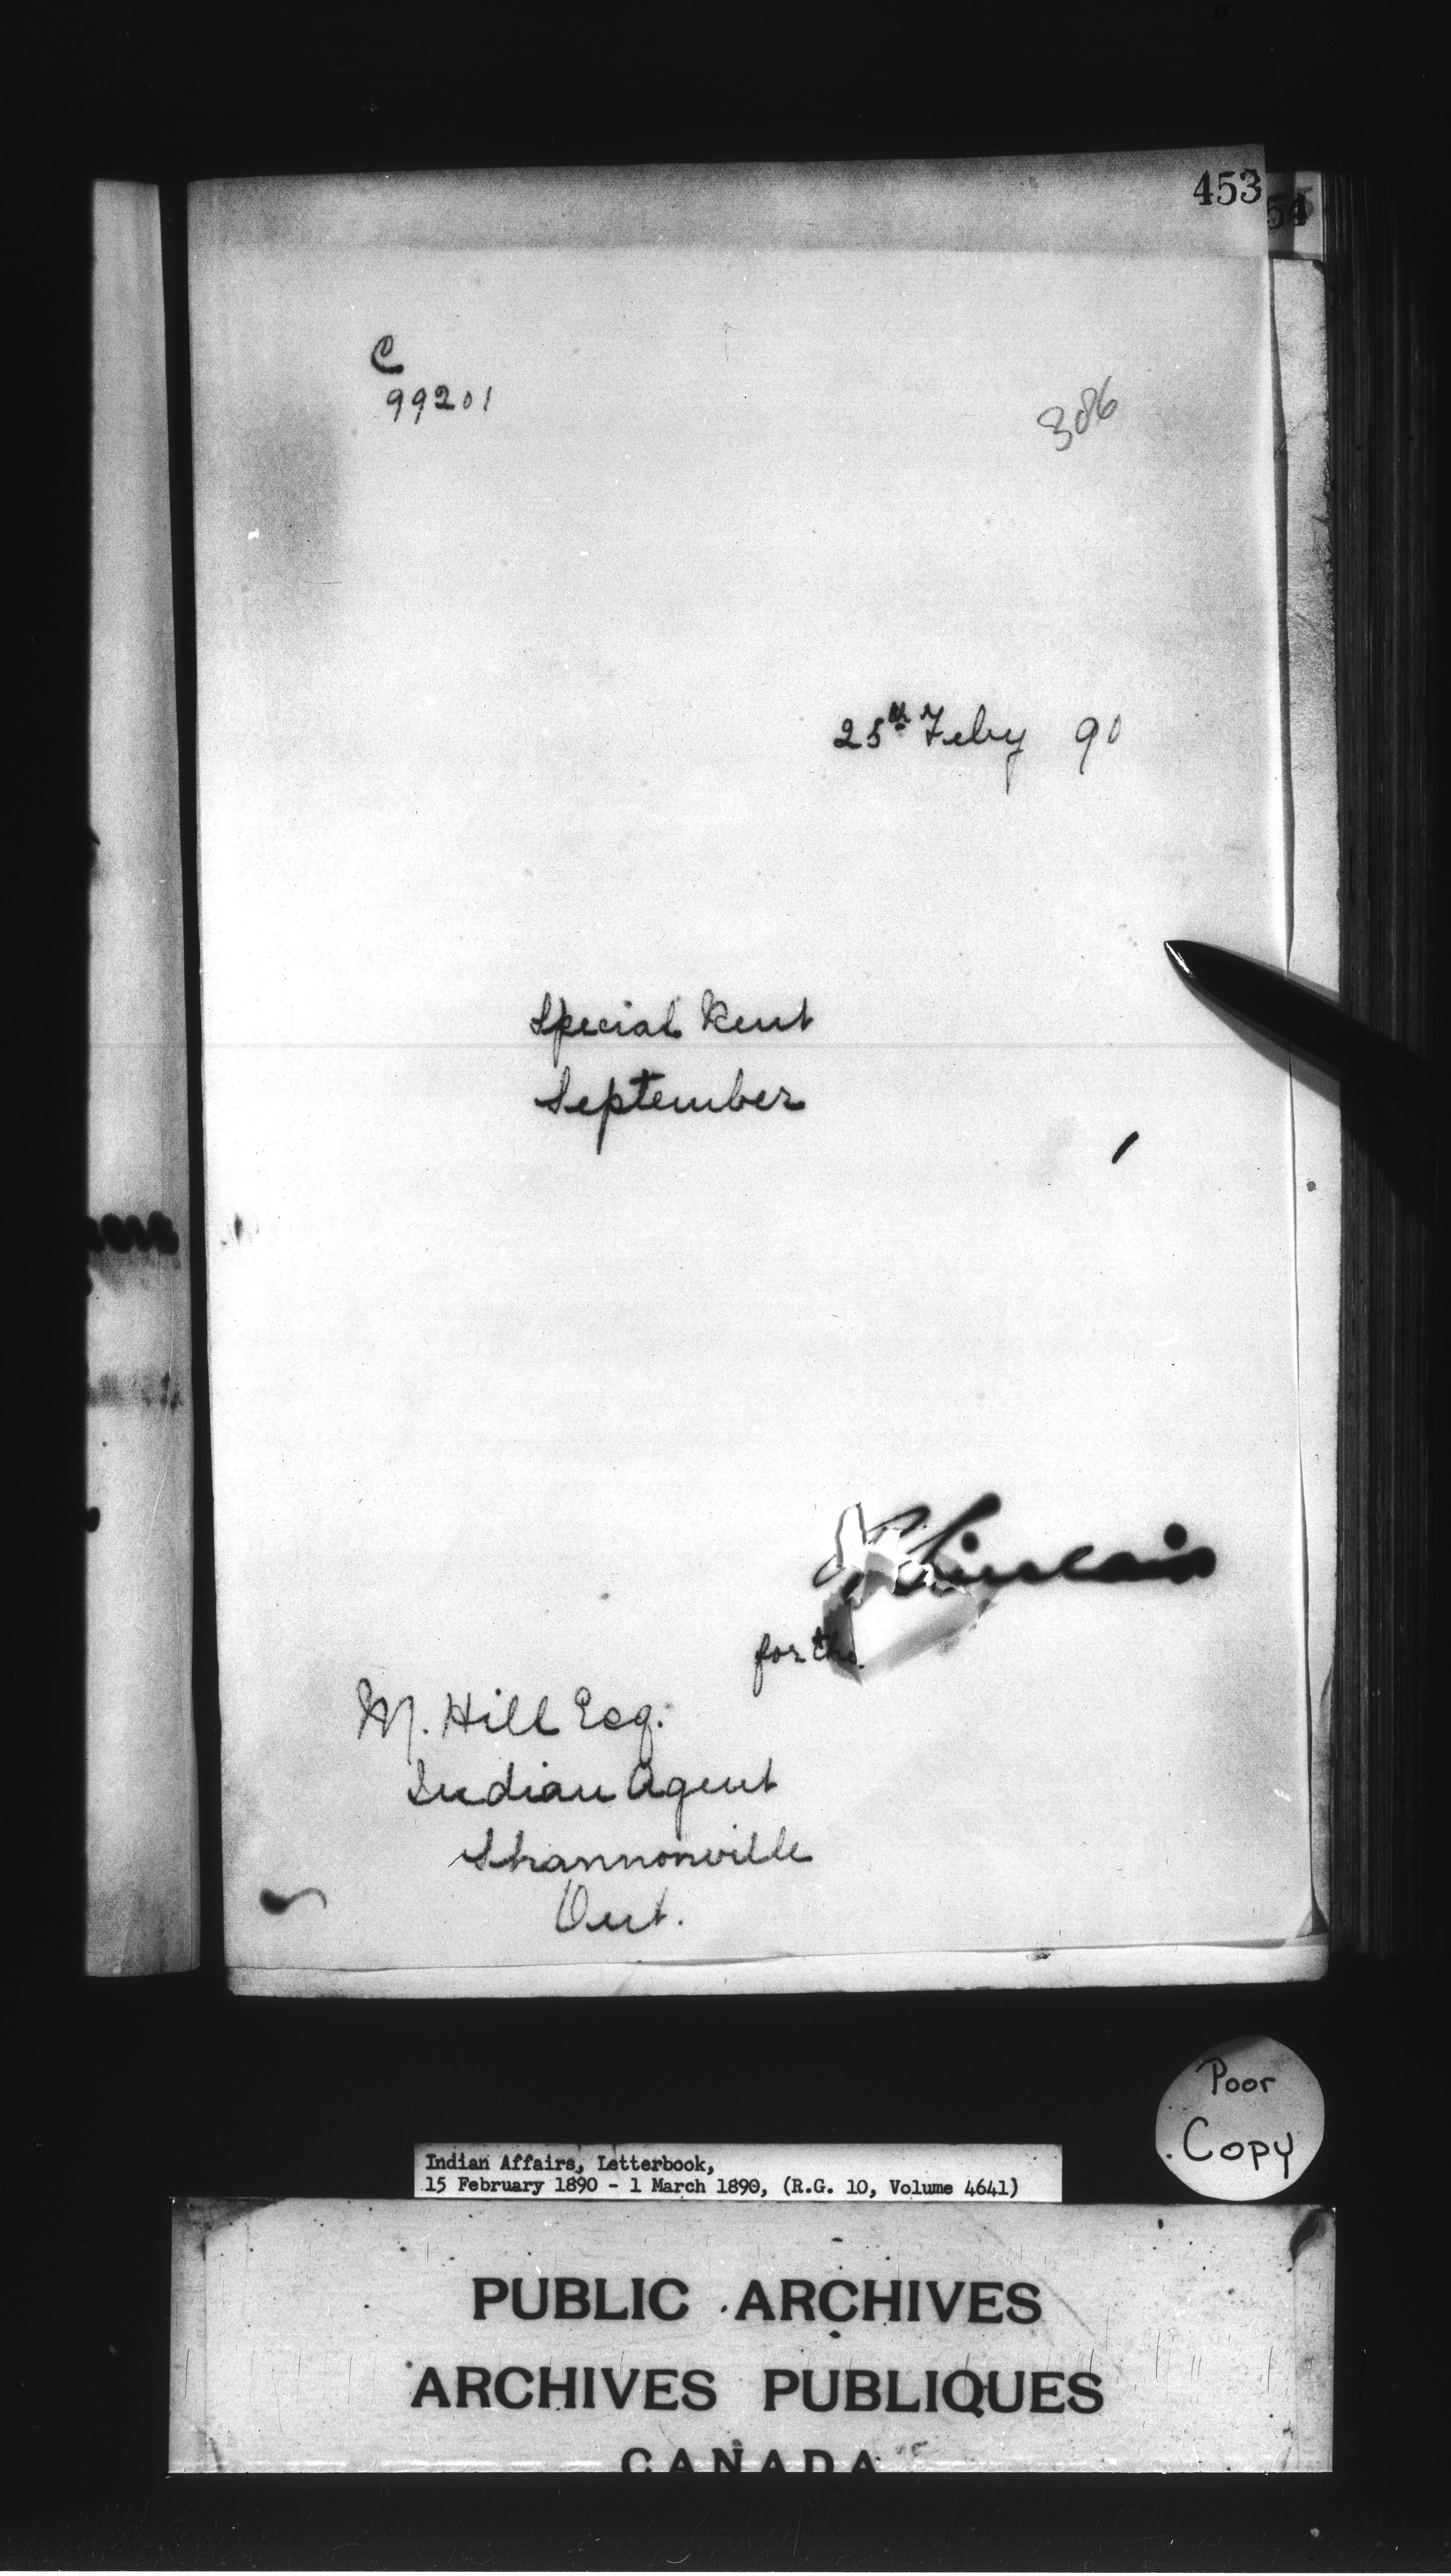 453
54
C
99201
386
25th Feby 90
Special Rent
September
Sinclair
for the
M. Hill Esq.
Indian Agent
Shannonville
Ont.
Poor
Copy
Indian Affairs, Letterbook,
15 February 1890 - 1 March 1890, (R.G. 10, Volume 4641)
PUBLIC ARCHIVES
ARCHIVES PUBLIQUES
CANADA